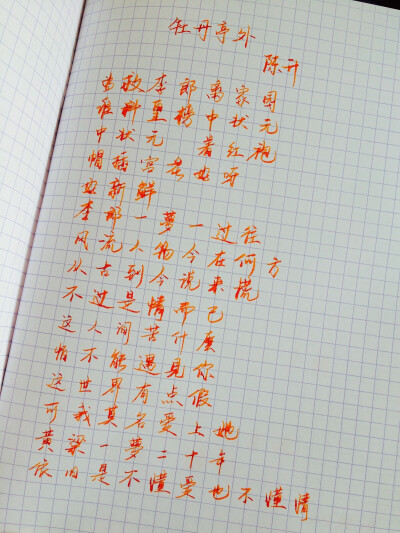 牡丹亭外
陈升
为救李郎离家园
谁料皇榜中状元
中状元 着红袍
帽插宫花好呀
好新鲜
李郎一夢一过往
风流人物今在何方
从古到今说来慌
不过是情而已
这人间苦什麼
怕不能遇見你
这世界有点假
可我莫名爱上她
黄粱一夢二十年
依旧是不懂爱也不懂情